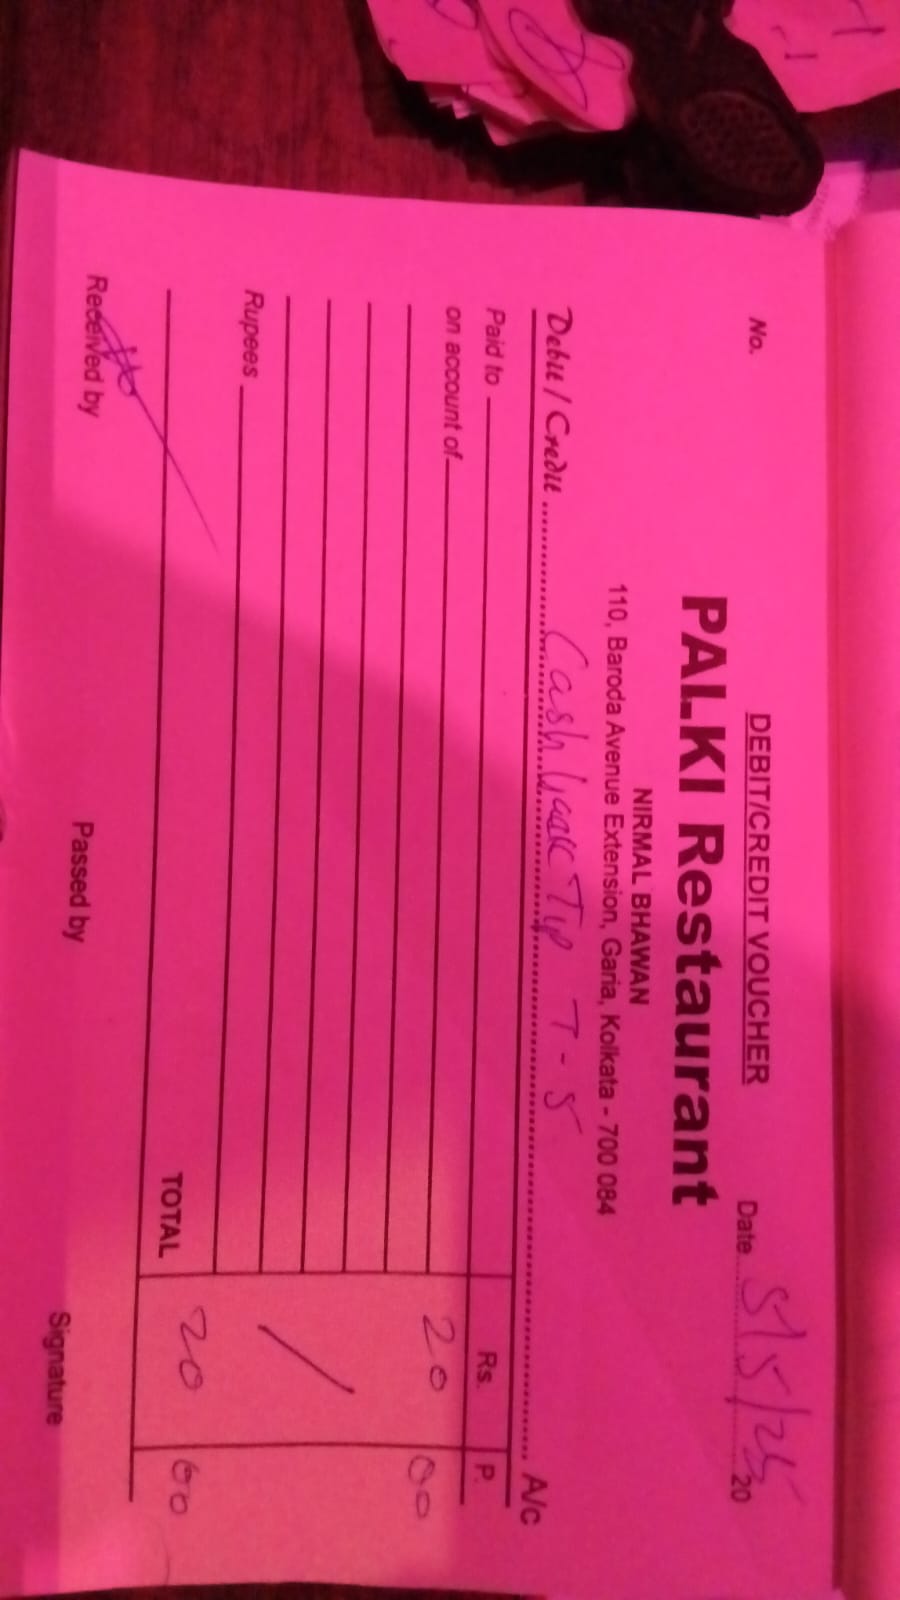 DEBIT/CREDIT VOUCHER
No. Date 5/5/25 20
PALKI Restaurant
NIRMAL BHAWAN
110, Baroda Avenue Extension, Garia, Kolkata - 700 084
Debit / Credit Cash back Tip T-5 A/c
Paid to Rs. P.
on account of 20 00
Rupees
TOTAL 20 00
Received by Passed by Signature